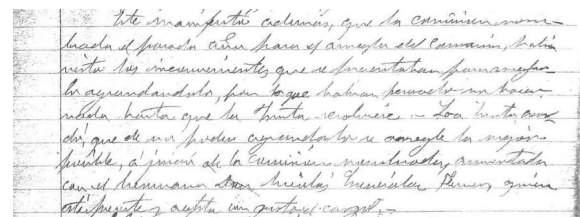 Este manifestó además, que la comisión nom-
brada el pasado año para el arreglo del Camarin, habia
visto los inconvenientes que se presentaban para arreglar-
lo agrandandolo, por lo que habian pensado no hacer
nada hasta que la Junta resolviese = La Junta acor-
dó, que de no poder agrandarlo se arregle lo mejor
posible, a juicio de la Comisión nombrada, aumentada
con el hermano Don Nicolás, quien
esté presente y acepta con gusto el cargo. =